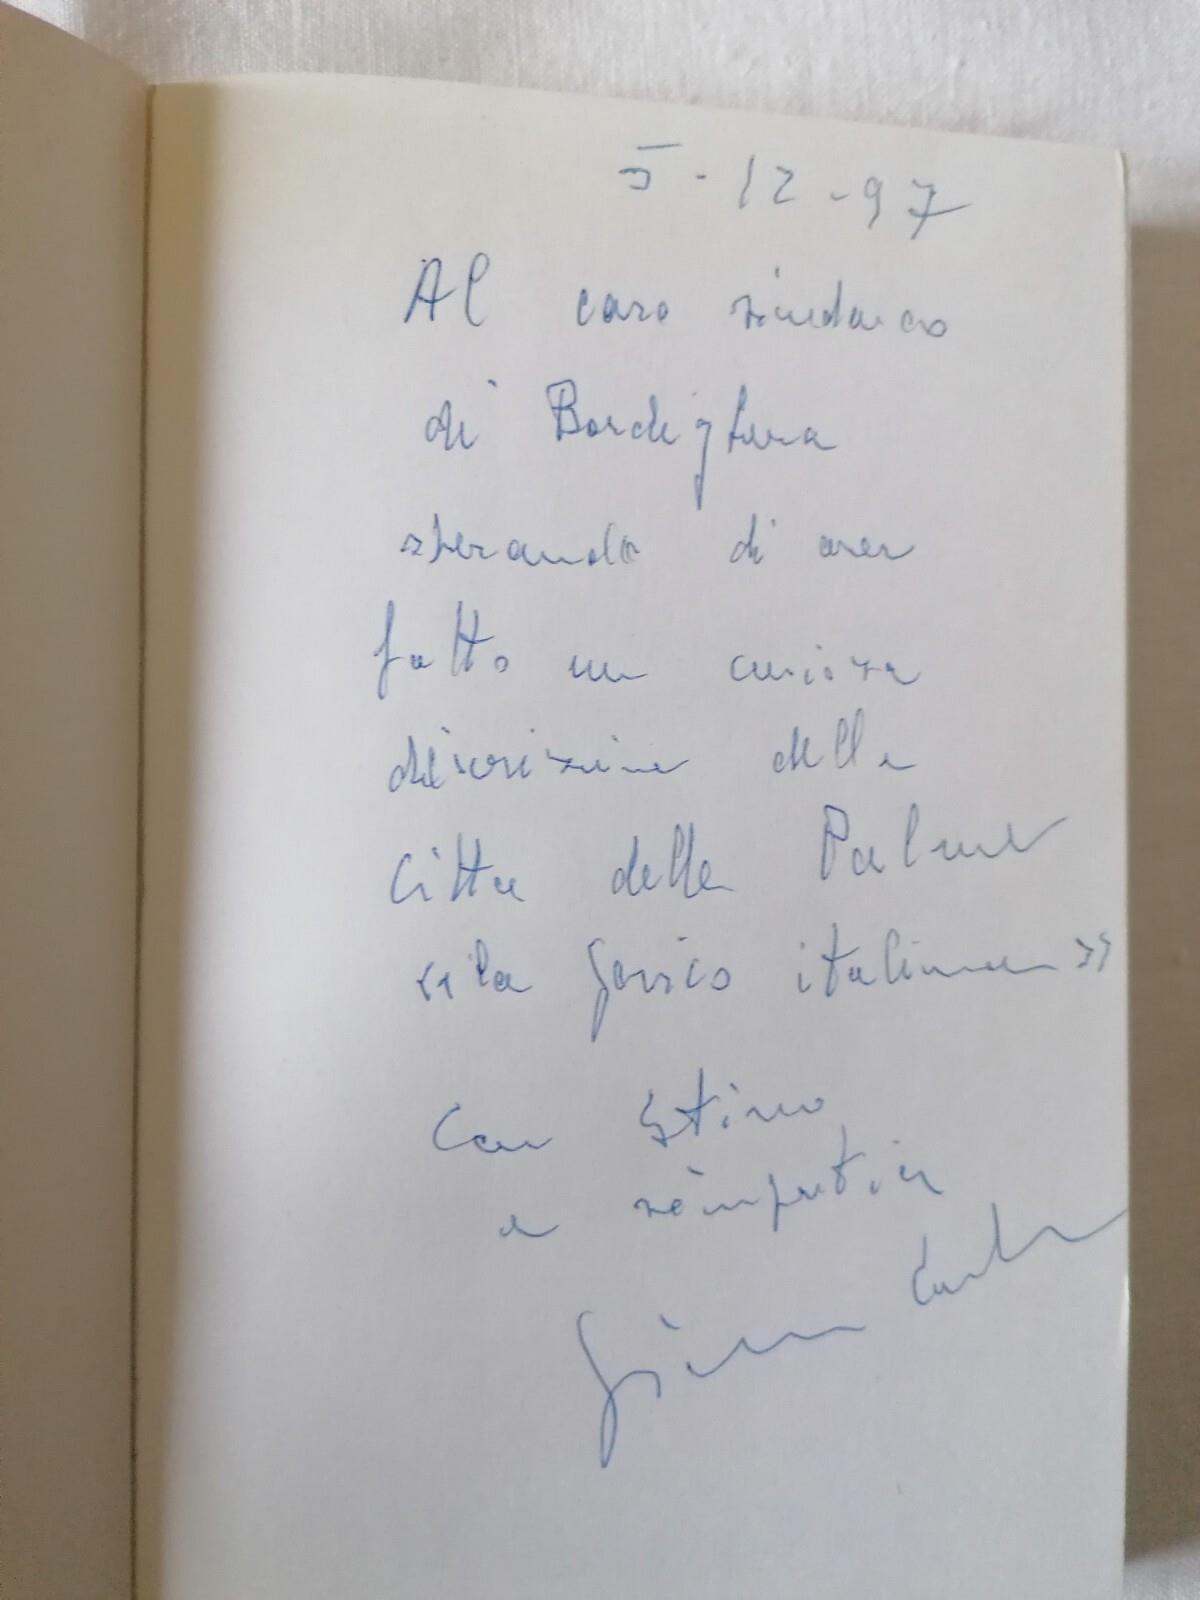 5-12-97
Al caro sindaco
di Bordighera
sperando di aver
fatto un curiosa
descrizione della
Citta delle Palme
"la Gerico italiana"
Con stima
e simpatia